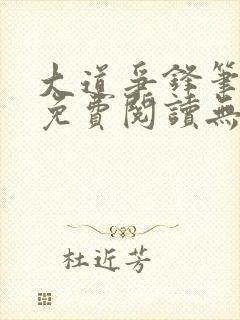 大道爭鋒筆
免費閱讀無
杜近芳